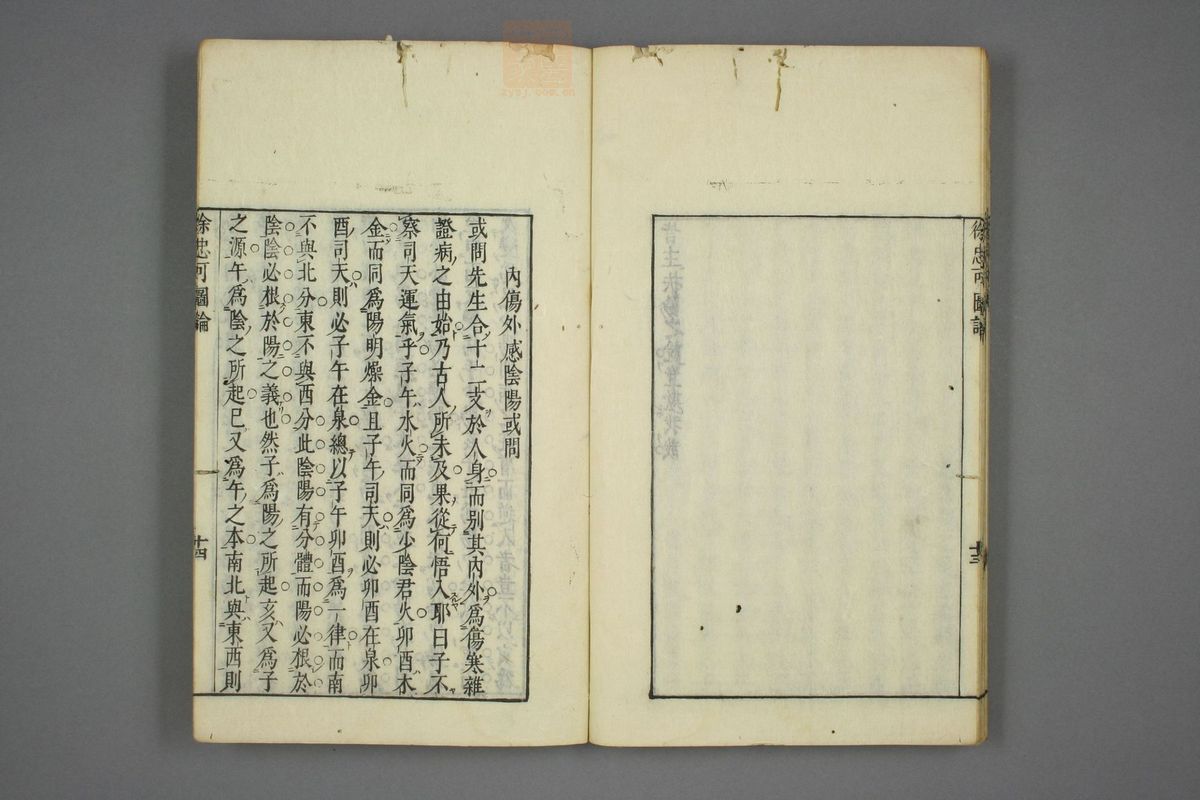 徐忠可圖論
十三
內傷外感陰陽或問
或問先生合十二支於人身而別其內外爲傷寒雜
證病之由始乃古人所未及果從何悟入耶曰子不
察司天運氣乎子午水火而同爲少陰君火卯酉木
金而同爲陽明燥金且子午司天則必卯酉在泉卯
酉司天則必子午在泉總以子午卯酉爲一律而南
不與北分東不與西分此陰陽有分體而陽必根於
陰陰必根於陽之義也然子爲陽之所起亥又爲子
之源午爲陰之所起巳又爲午之本南北與東西則
徐忠可圖論
十四
zysj.com.cn